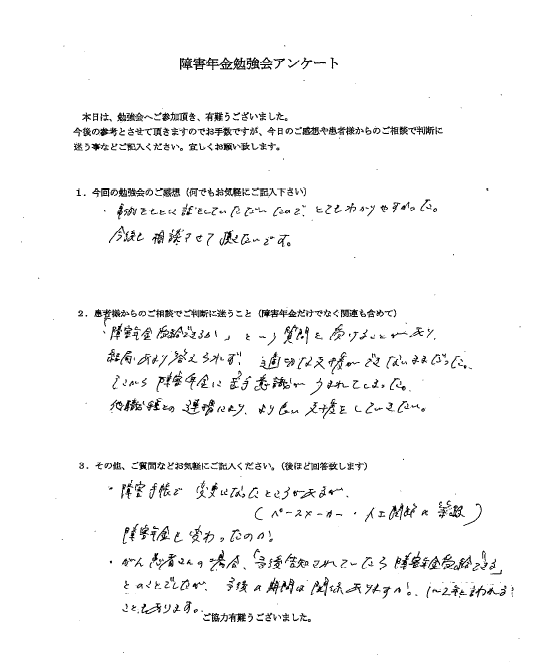 障害年金勉強会アンケート
本日は、勉強会へご参加頂き、有難うございました。
今後の参考とさせて頂きますのでお手数ですが、今日のご感想や患者様からのご相談で判断に
迷う事などご記入ください。宜しくお願い致します。
１．今回の勉強会のご感想（何でもお気軽にご記入下さい）
・事例をもとに話をしていただいたので、とてもわかりやすかった。
今後も相談させて頂きたいです。
２．患者様からのご相談でご判断に迷うこと（障害年金だけでなく関連も含めて）
・「障害年金受給できるか」という質問を受けることがあり、
結局あまり答えられず、適切な支援ができないままだった。
そこから障害年金に苦手意識がうまれてしまった。
他職種との連携により、より良い支援をしていきたい。
３．その他、ご質問などお気軽にご記入ください。（後ほど回答致します）
・障害手帳で変更になったところがあるが、
（ペースメーカー・人工関節の等級）
障害年金も変わったのか？
・がん患者さんの場合、「予後告知されていたら障害年金受給できる」
とのことでしたが、予後の期間は関係ありますか？、1〜2年と言われる
こともあります。
ご協力有難うございました。